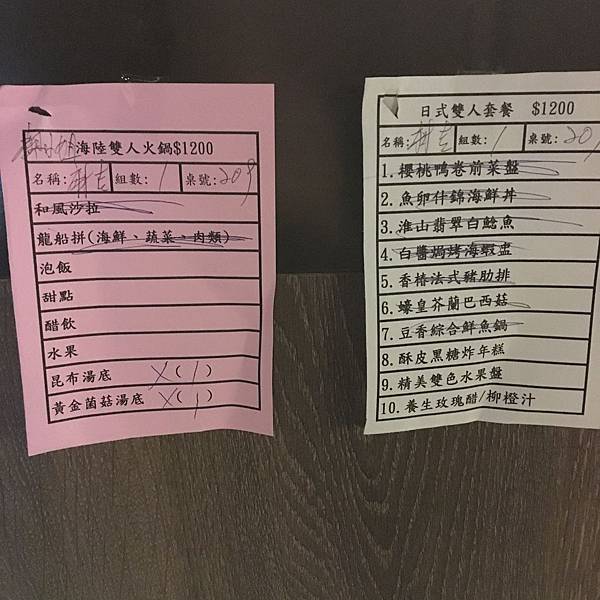 海陸雙人火鍋$1200
名稱: 組數:1 桌號:209
和風沙拉
龍船拼(海鮮、蔬菜、肉類)
泡飯
甜點
醋飲
水果
昆布湯底 X(1)
黃金菌菇湯底 X(1)
日式雙人套餐 $1200
名稱: 組數:1 桌號:209
1. 櫻桃鴨卷前菜盤
2. 魚卵什錦海鮮丼
3. 淮山翡翠白鯰魚
4. 白醬焗烤海蝦盅
5. 香椿法式豬肋排
6. 蠔皇芥蘭巴西菇
7. 豆香綜合鮮魚鍋
8. 酥皮黑糖炸年糕
9. 精美雙色水果盤
10. 養生玫瑰醋/柳橙汁